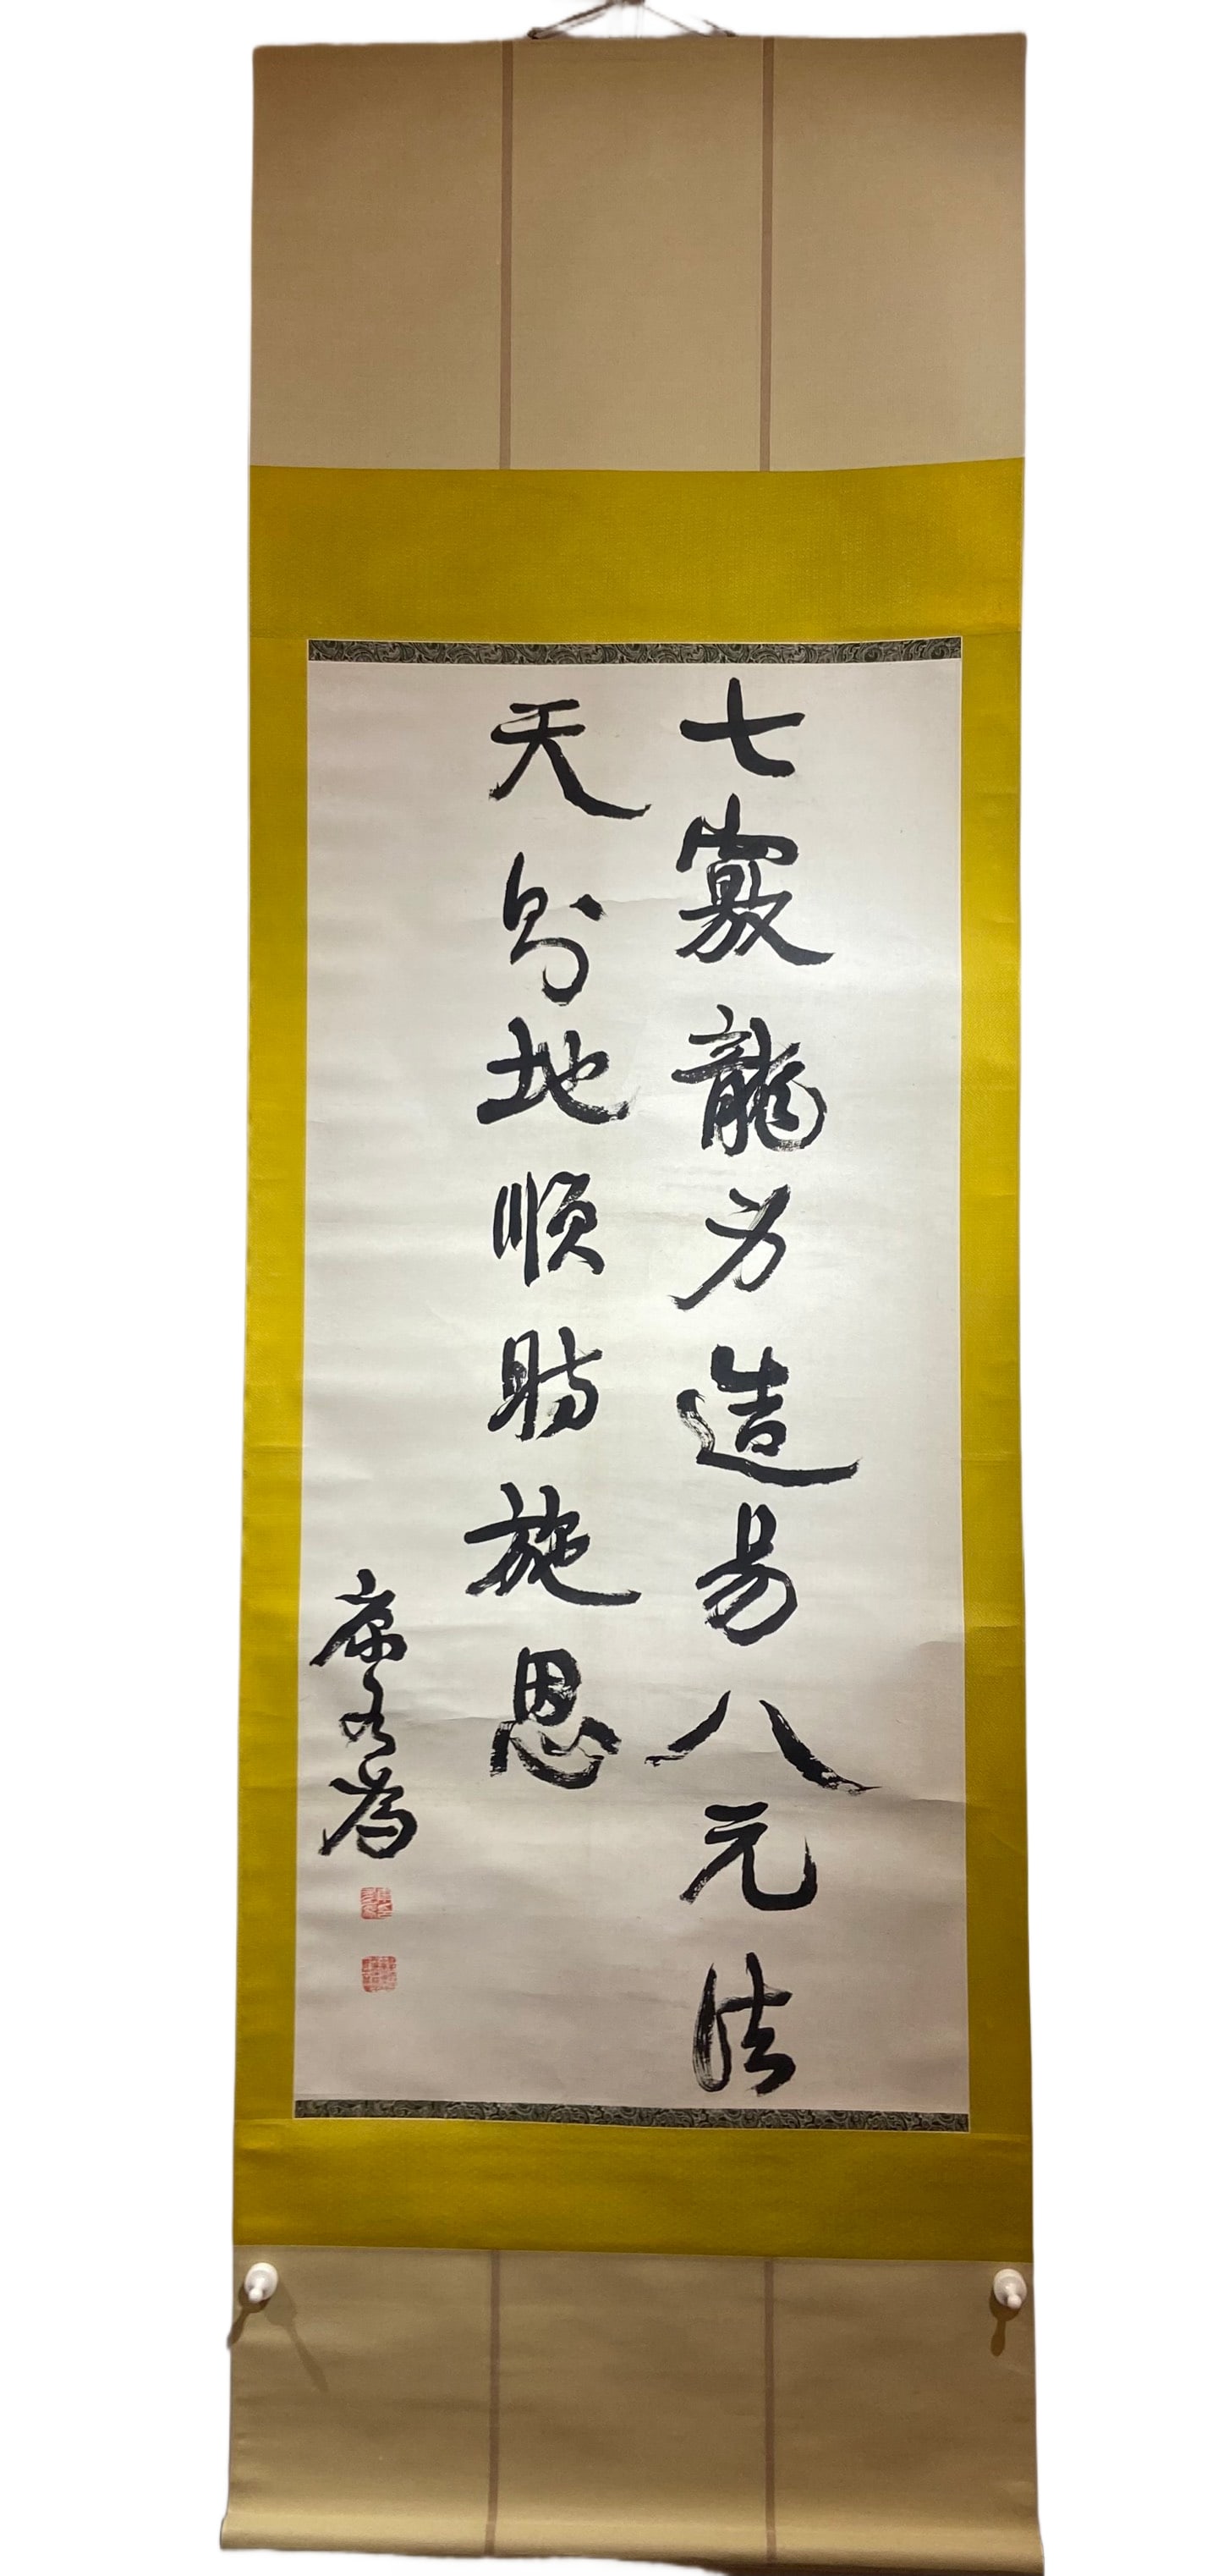 七竅龍為造易八元法
天象地順時施恩
康有為